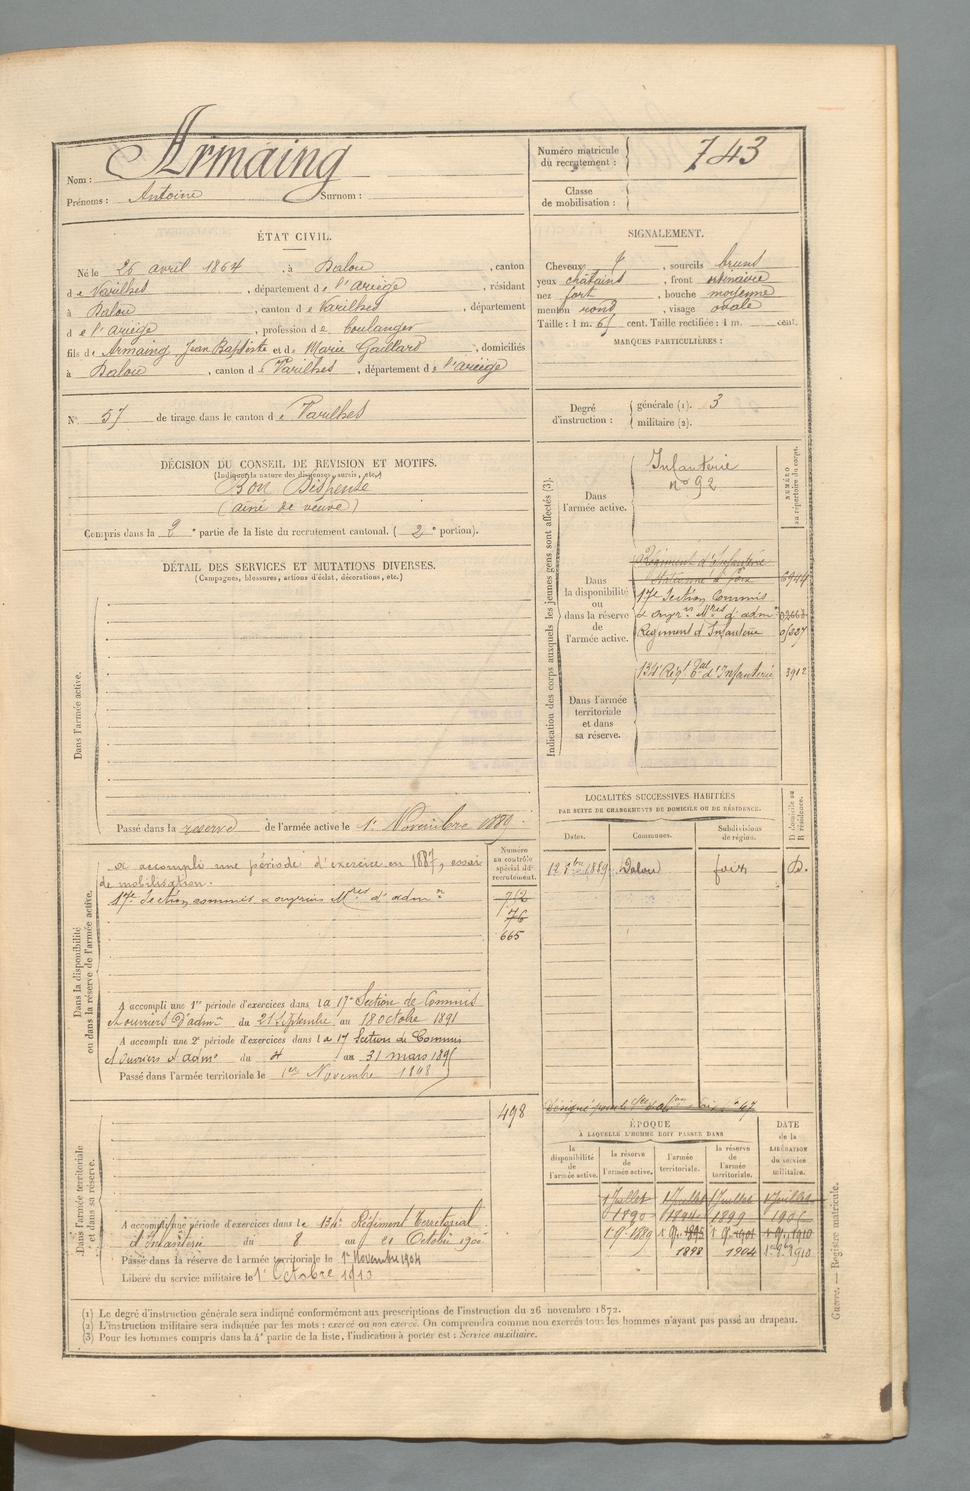 Nom : Armaing
Prénoms : Antoine Surnom :
Numéro matricule du recrutement : 743
Classe de mobilisation :
ÉTAT CIVIL.
Né le 26 avril 1864, à Dalou, canton
de Varilhes, département de l'ariège, résidant
à Dalou, canton de Varilhes, département
de l'ariège, profession de boulanger
fils de Armaing Jean Baptiste et de Marie Gaillard, domiciliés
à Dalou, canton de Varilhes, département de l'ariège
SIGNALEMENT.
Cheveux, sourcils bruns
yeux châtains, front ordinaire
nez fort, bouche moyenne
menton rond, visage ovale
Taille : 1 m. 65 cent. Taille rectifiée : 1 m. cent.
MARQUES PARTICULIÈRES :
N° 57 de tirage dans le canton de Varilhes
Degré d'instruction : générale (1). 3
militaire (2).
DÉCISION DU CONSEIL DE REVISION ET MOTIFS.
(Indiquer la nature des dispenses, sursis, etc.)
Bon Dispensé
(aîné de veuve)
Compris dans la 2e partie de la liste du recrutement cantonal. (2e portion).
DÉTAIL DES SERVICES ET MUTATIONS DIVERSES.
(Campagnes, blessures, actions d'éclat, décorations, etc.)
Dans l'armée active.
Passé dans la reserve de l'armée active le 1er Novembre 1889
Indication des corps auxquels les jeunes gens sont affectés (3).
NUMÉRO au répertoire du corps.
Dans l'armée active.
Infanterie
n° 92
Dans la disponibilité ou dans la réserve de l'armée active.
Régiment d'Infanterie
6944
17e Section Commis
& ouvrrs Mres d'admon
Régiment d'Infanterie
Dans l'armée territoriale et dans sa réserve.
134e Régt tal d'Infanterie 3912
LOCALITÉS SUCCESSIVES HABITÉES
PAR SUITE DE CHANGEMENTS DE DOMICILE OU DE RÉSIDENCE.
Dates. Communes. Subdivisions de région. D domicile ou R résidence.
1889 Dalou foix D.
Dans la disponibilité ou dans la réserve de l'armée active.
Numéro au contrôle spécial du recrutement.
a accompli une période d'exercice en 1887, essai
de mobilisation.
17e Section commis & ouvriers Mres d'admon
752
76
665
A accompli une 1re période d'exercices dans la 17e Section de Commis
et ouvriers d'admon du 21 Septembre au 18 octobre 1891
A accompli une 2e période d'exercices dans la 17 Section de Commis
et Ouvriers d'admon du 4 au 31 mars 1895
Passé dans l'armée territoriale le 1er Novembre 1898
Dans l'armée territoriale et dans sa réserve.
498
A accompli une période d'exercices dans le 134e Régiment Territorial
d'Infanterie du 8 au 21 Octobre 1900
Passé dans la réserve de l'armée territoriale le 1er Novembre 1904
Libéré du service militaire le 1er Octobre 1910
ÉPOQUE
À LAQUELLE L'HOMME DOIT PASSER DANS
DATE de la LIBÉRATION du service militaire.
la disponibilité de l'armée active. la réserve de l'armée active. l'armée territoriale. la réserve de l'armée territoriale.
1 Juillet 1 Juillet 1 Juillet 1 Juillet
1890 1894 1899 1905
1889 1895 1901 1910
1898 1904 1910
(1) Le degré d'instruction générale sera indiqué conformément aux prescriptions de l'instruction du 26 novembre 1872.
(2) L'instruction militaire sera indiquée par les mots : exercé ou non exercé. On comprendra comme non exercés tous les hommes n'ayant pas passé au drapeau.
(3) Pour les hommes compris dans la 4e partie de la liste, l'indication à porter est : Service auxiliaire.
Guerre. — Registre matricule.